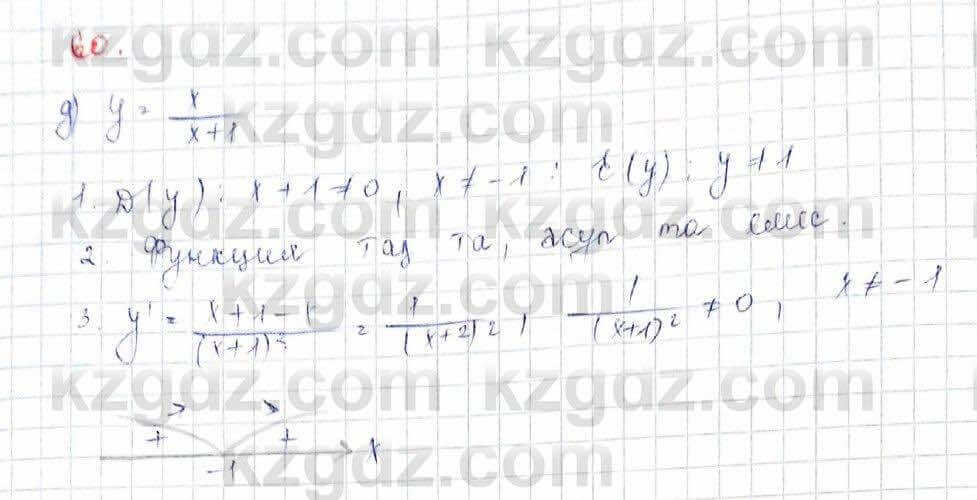 60.
g) y = x/(x+1)
1. D(y): x+1≠0, x≠-1; E(y): y≠1
2. Функция тақ та, жұп та емес.
3. y' = (x+1-1)/(x+1)² = 1/(x+2)², 1/(x+1)² ≠ 0, x≠-1
+ + x
-1
kzgaz.com kzgaz.com
kzgaz.com
kzgaz.com kzgaz.com
kzgaz.com
kzgaz.com kzgaz.com
kzgaz.com